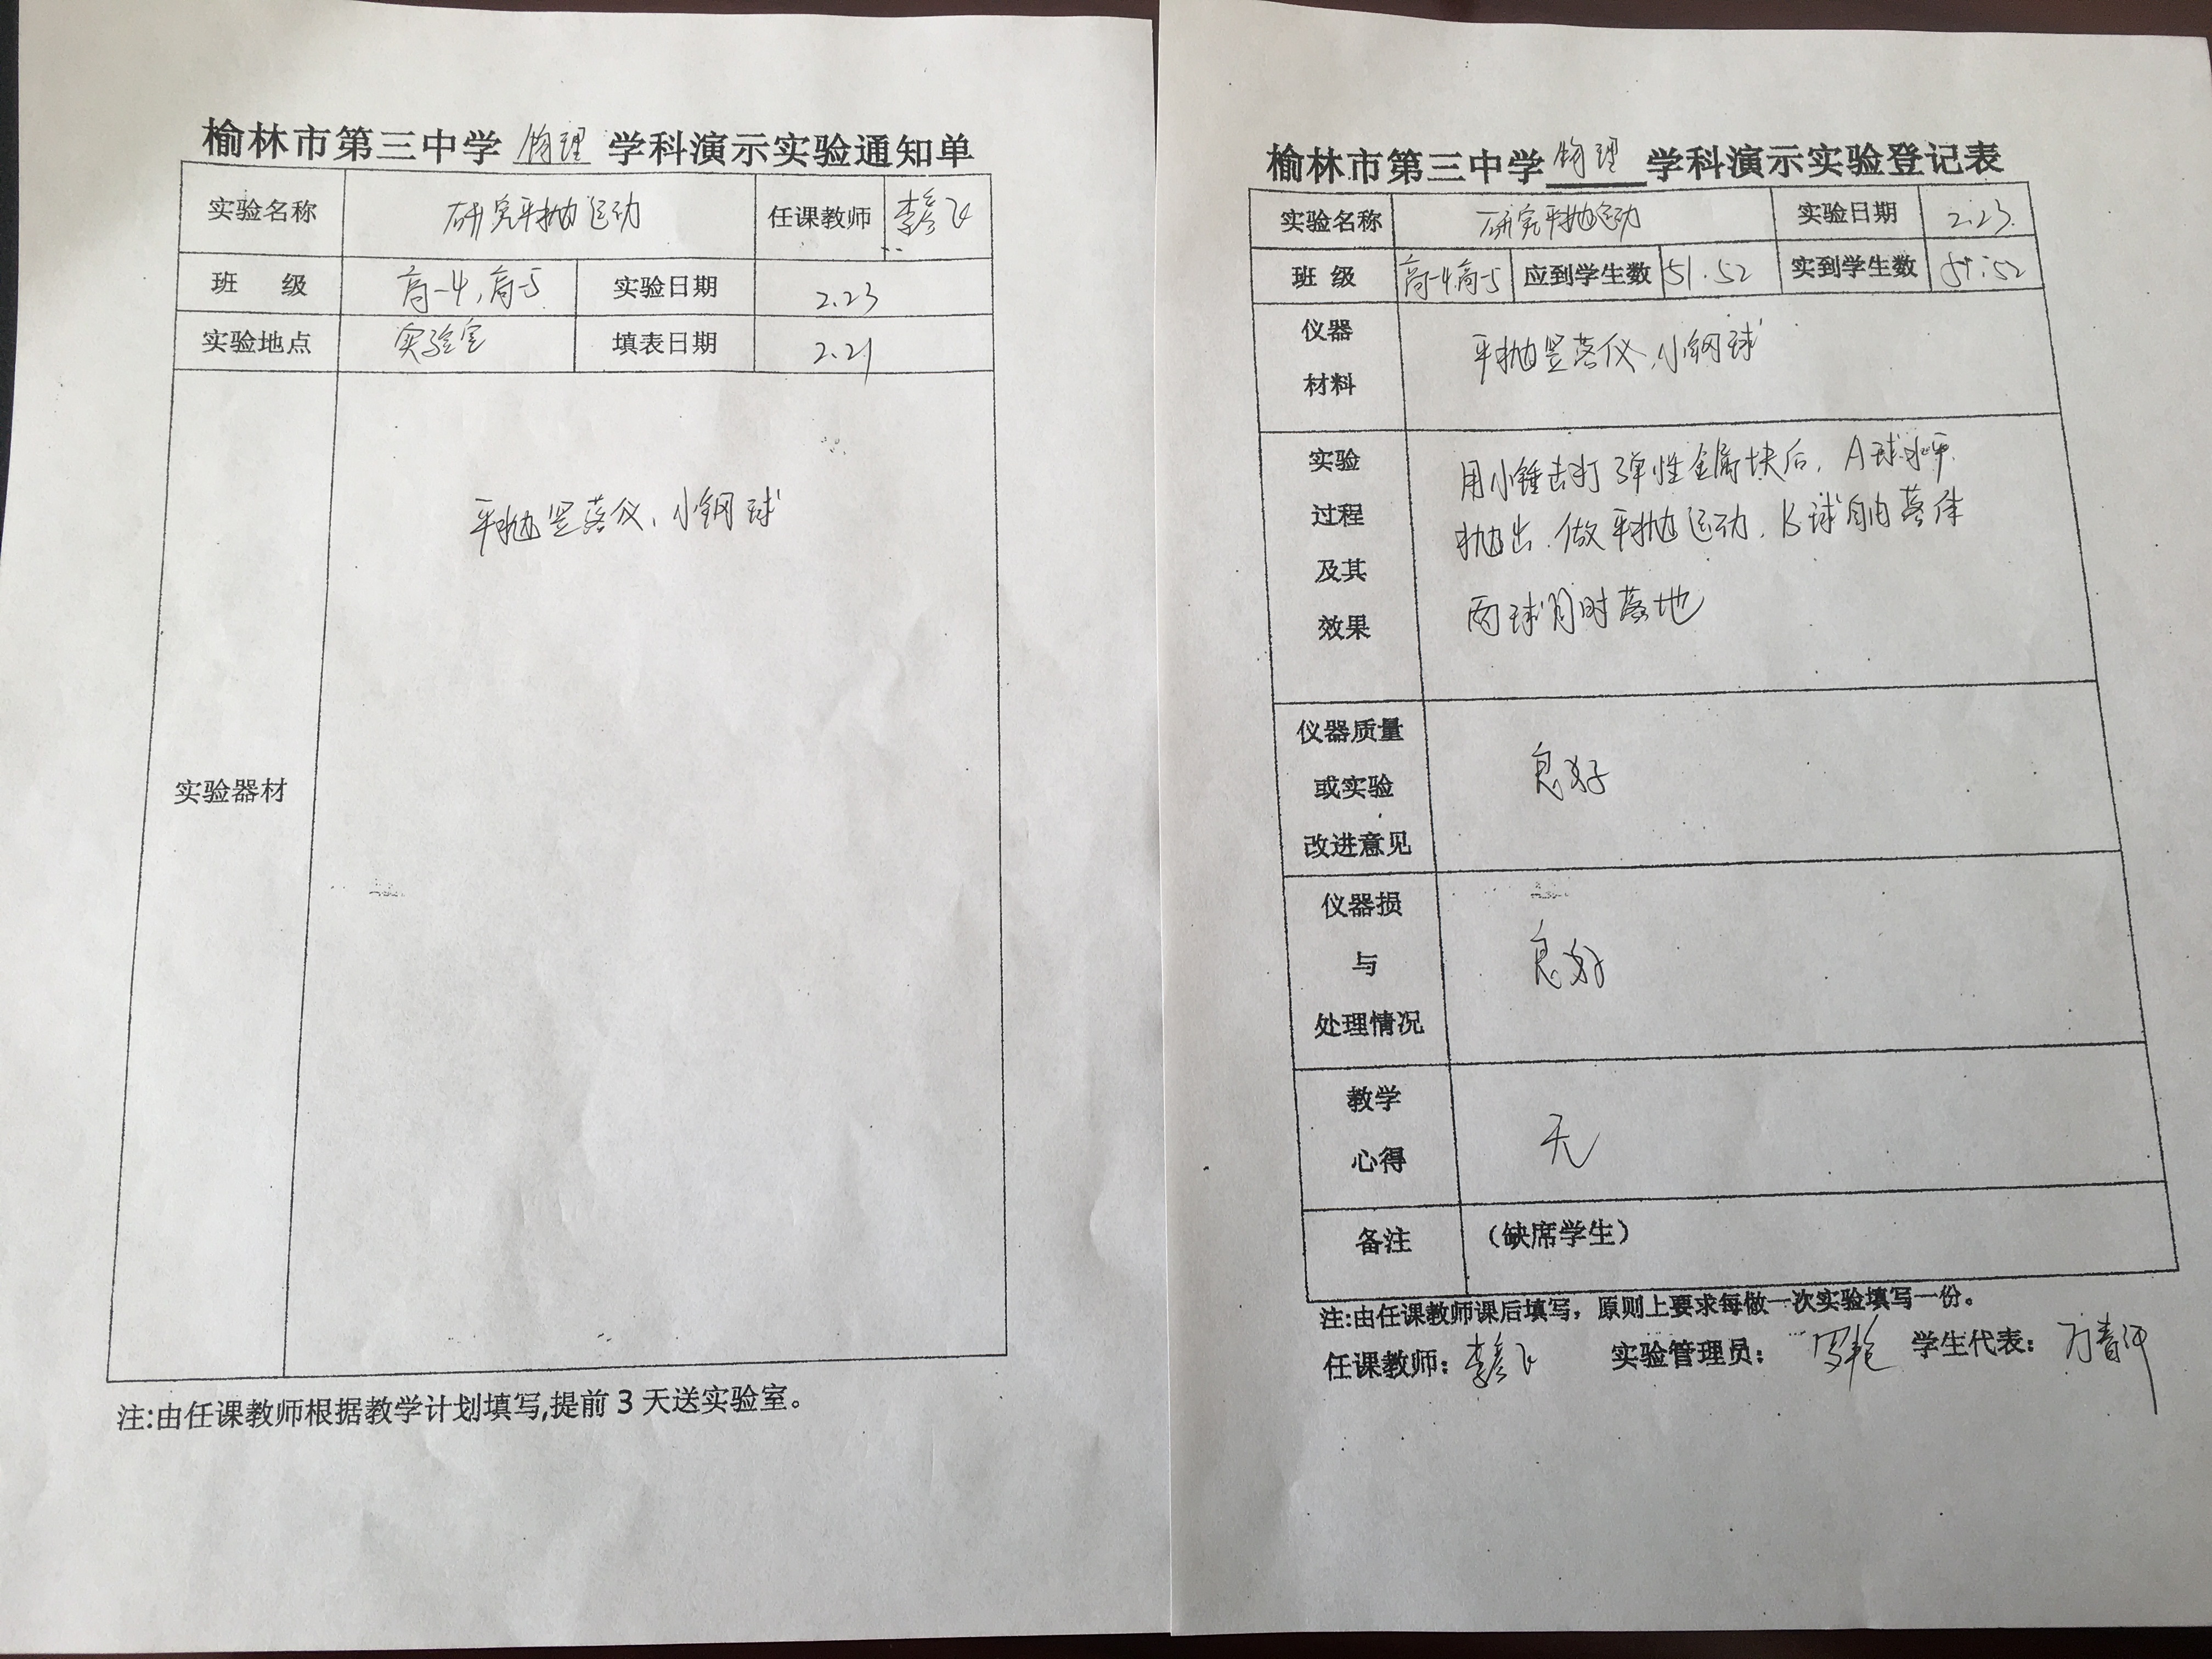 榆林市第三中学 物理 学科演示实验通知单
实验名称 研究平抛运动 任课教师 李彦飞
班 级 高一4,高一5 实验日期 2.23
实验地点 实验室 填表日期 2.21
实验器材 平抛竖落仪、小钢球
注:由任课教师根据教学计划填写,提前3天送实验室。
榆林市第三中学 物理 学科演示实验登记表
实验名称 研究平抛运动 实验日期 2.23.
班 级 高一4.高一5 应到学生数 51.52 实到学生数 51.52
仪器
材料
平抛竖落仪、小钢球
实验
过程
及其
效果
用小锤击打弹性金属块后,A球水平
抛出.做平抛运动.B球自由落体
两球同时落地
仪器质量
或实验
改进意见
良好
仪器损
与
处理情况
良好
教学
心得
无
备注 (缺席学生)
注:由任课教师课后填写,原则上要求每做一次实验填写一份。
任课教师:李彦飞 实验管理员: 学生代表: